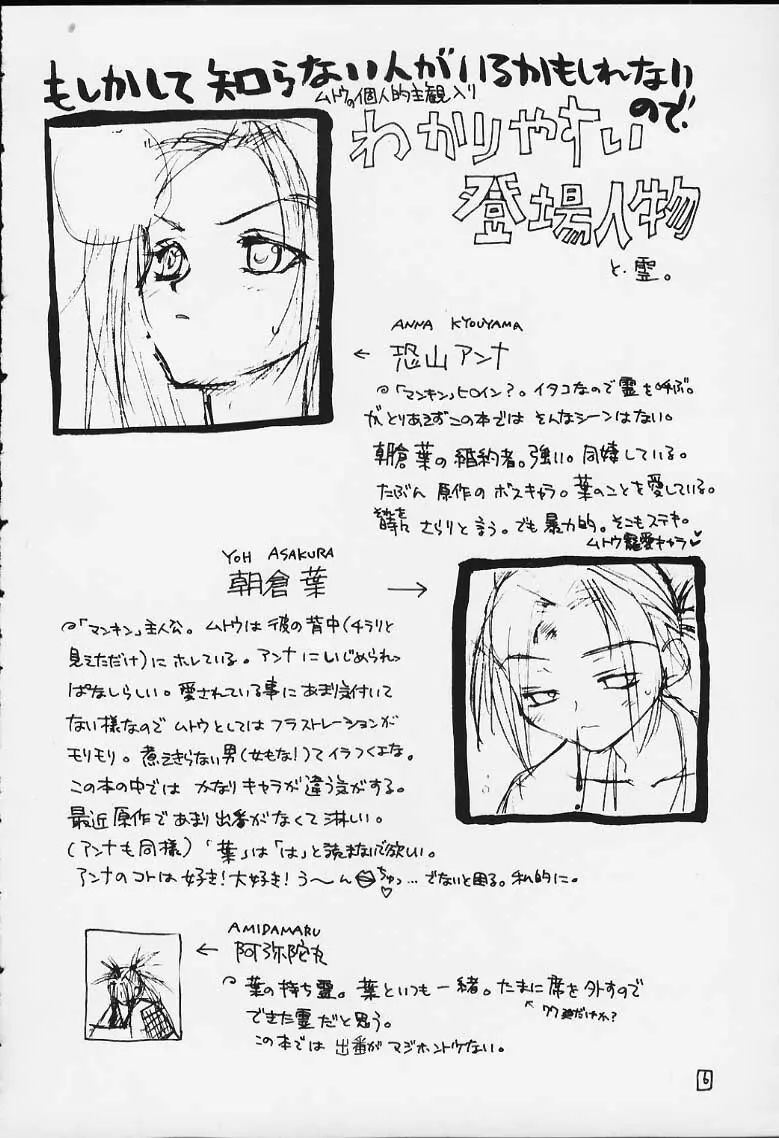 もしかして知らない人がいるかもしれない
ので
ムトウの個人的主観入り
わかりやすい
登場人物
と、霊。
ANNA KYOUYAMA
← 恐山アンナ
「マンキン」ヒロイン?。イタコなので霊を呼ぶ。
がとりあえずこの本では そんなシーンはない。
朝倉葉の婚約者。強い。同棲している。
たぶん 原作のボスキャラ。葉のことを愛している。
それを
時にさらりと言う。でも暴力的。そこもステキ。
ムトウ寵愛キャラ♥
YOH ASAKURA
朝倉 葉 →
「マンキン」主人公。ムトウは彼の背中(チラリと
見えただけ)にホレている。アンナにいじめられっ
ぱなしらしい。愛されている事にあまり気付いて
ない様なのでムトウとしてはフラストレーションが
モリモリ。煮えきらない男(女もな!)てイラつくよな。
この本の中では かなりキャラが違う気がする。
最近原作であまり出番がなくて淋しい。
(アンナも同様)「葉」は「は」と読まないで欲しい。
アンナのコトは好き!大好き!う〜ん ちゅっ♡…でないと困る。私的に。
AMIDAMARU
← 阿弥陀丸
葉の持ち霊。葉といつも一緒。たまに席を外すので
できた霊だと思う。
この本では 出番がマジホントウない。
6